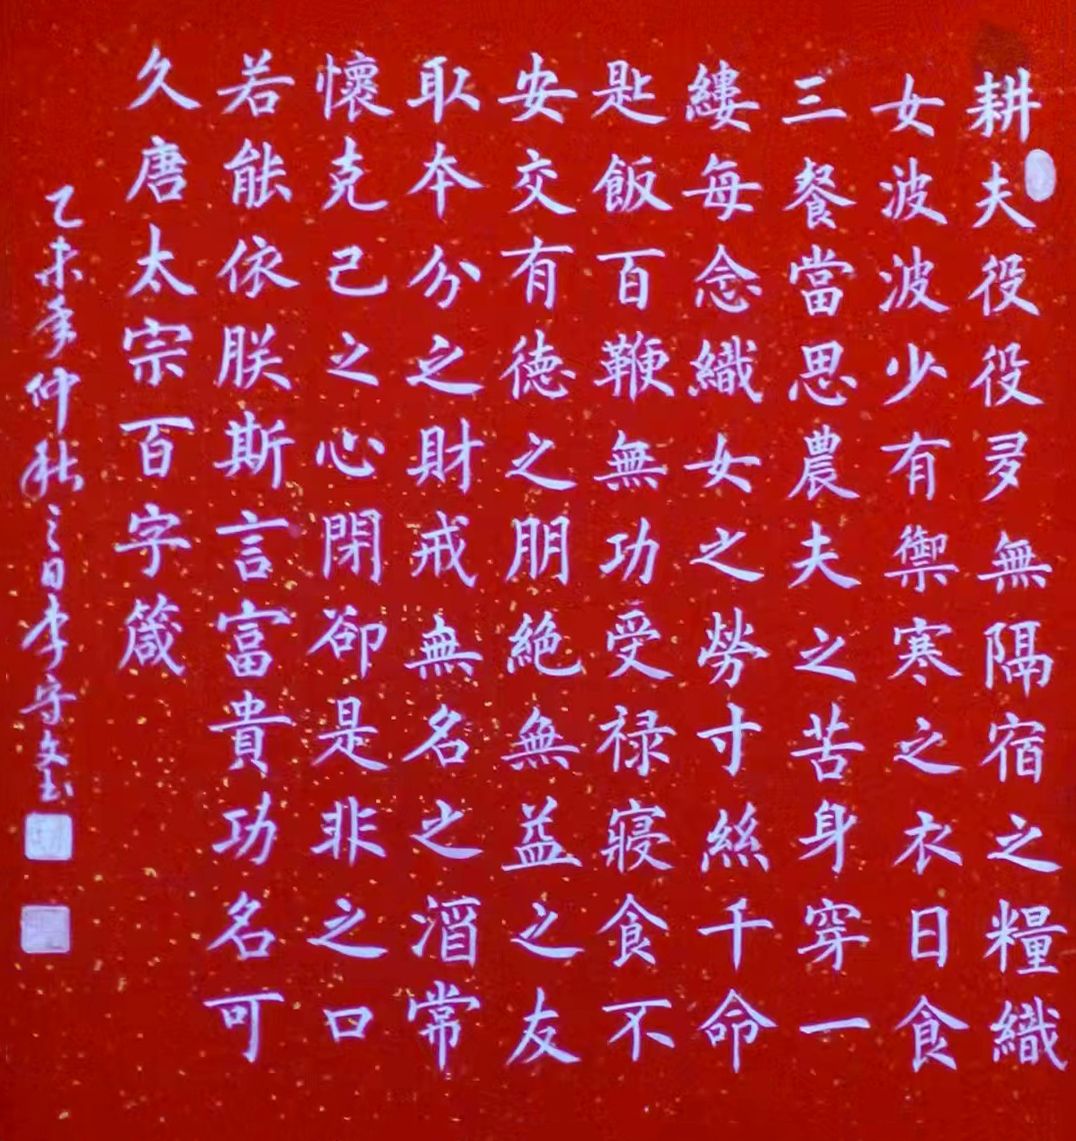 耕夫役役多無隔宿之糧織
女波波少有禦寒之衣日食
三餐當思農夫之苦身穿一
縷每念織女之勞寸絲千命
匙飯百鞭無功受禄寢食不
安交有德之朋絶無益之友
取本分之財戒無名之酒常
懷克己之心閉卻是非之口
若能依朕斯言富貴功名可
久唐太宗百字箴
乙未年仲秋之日李守文書